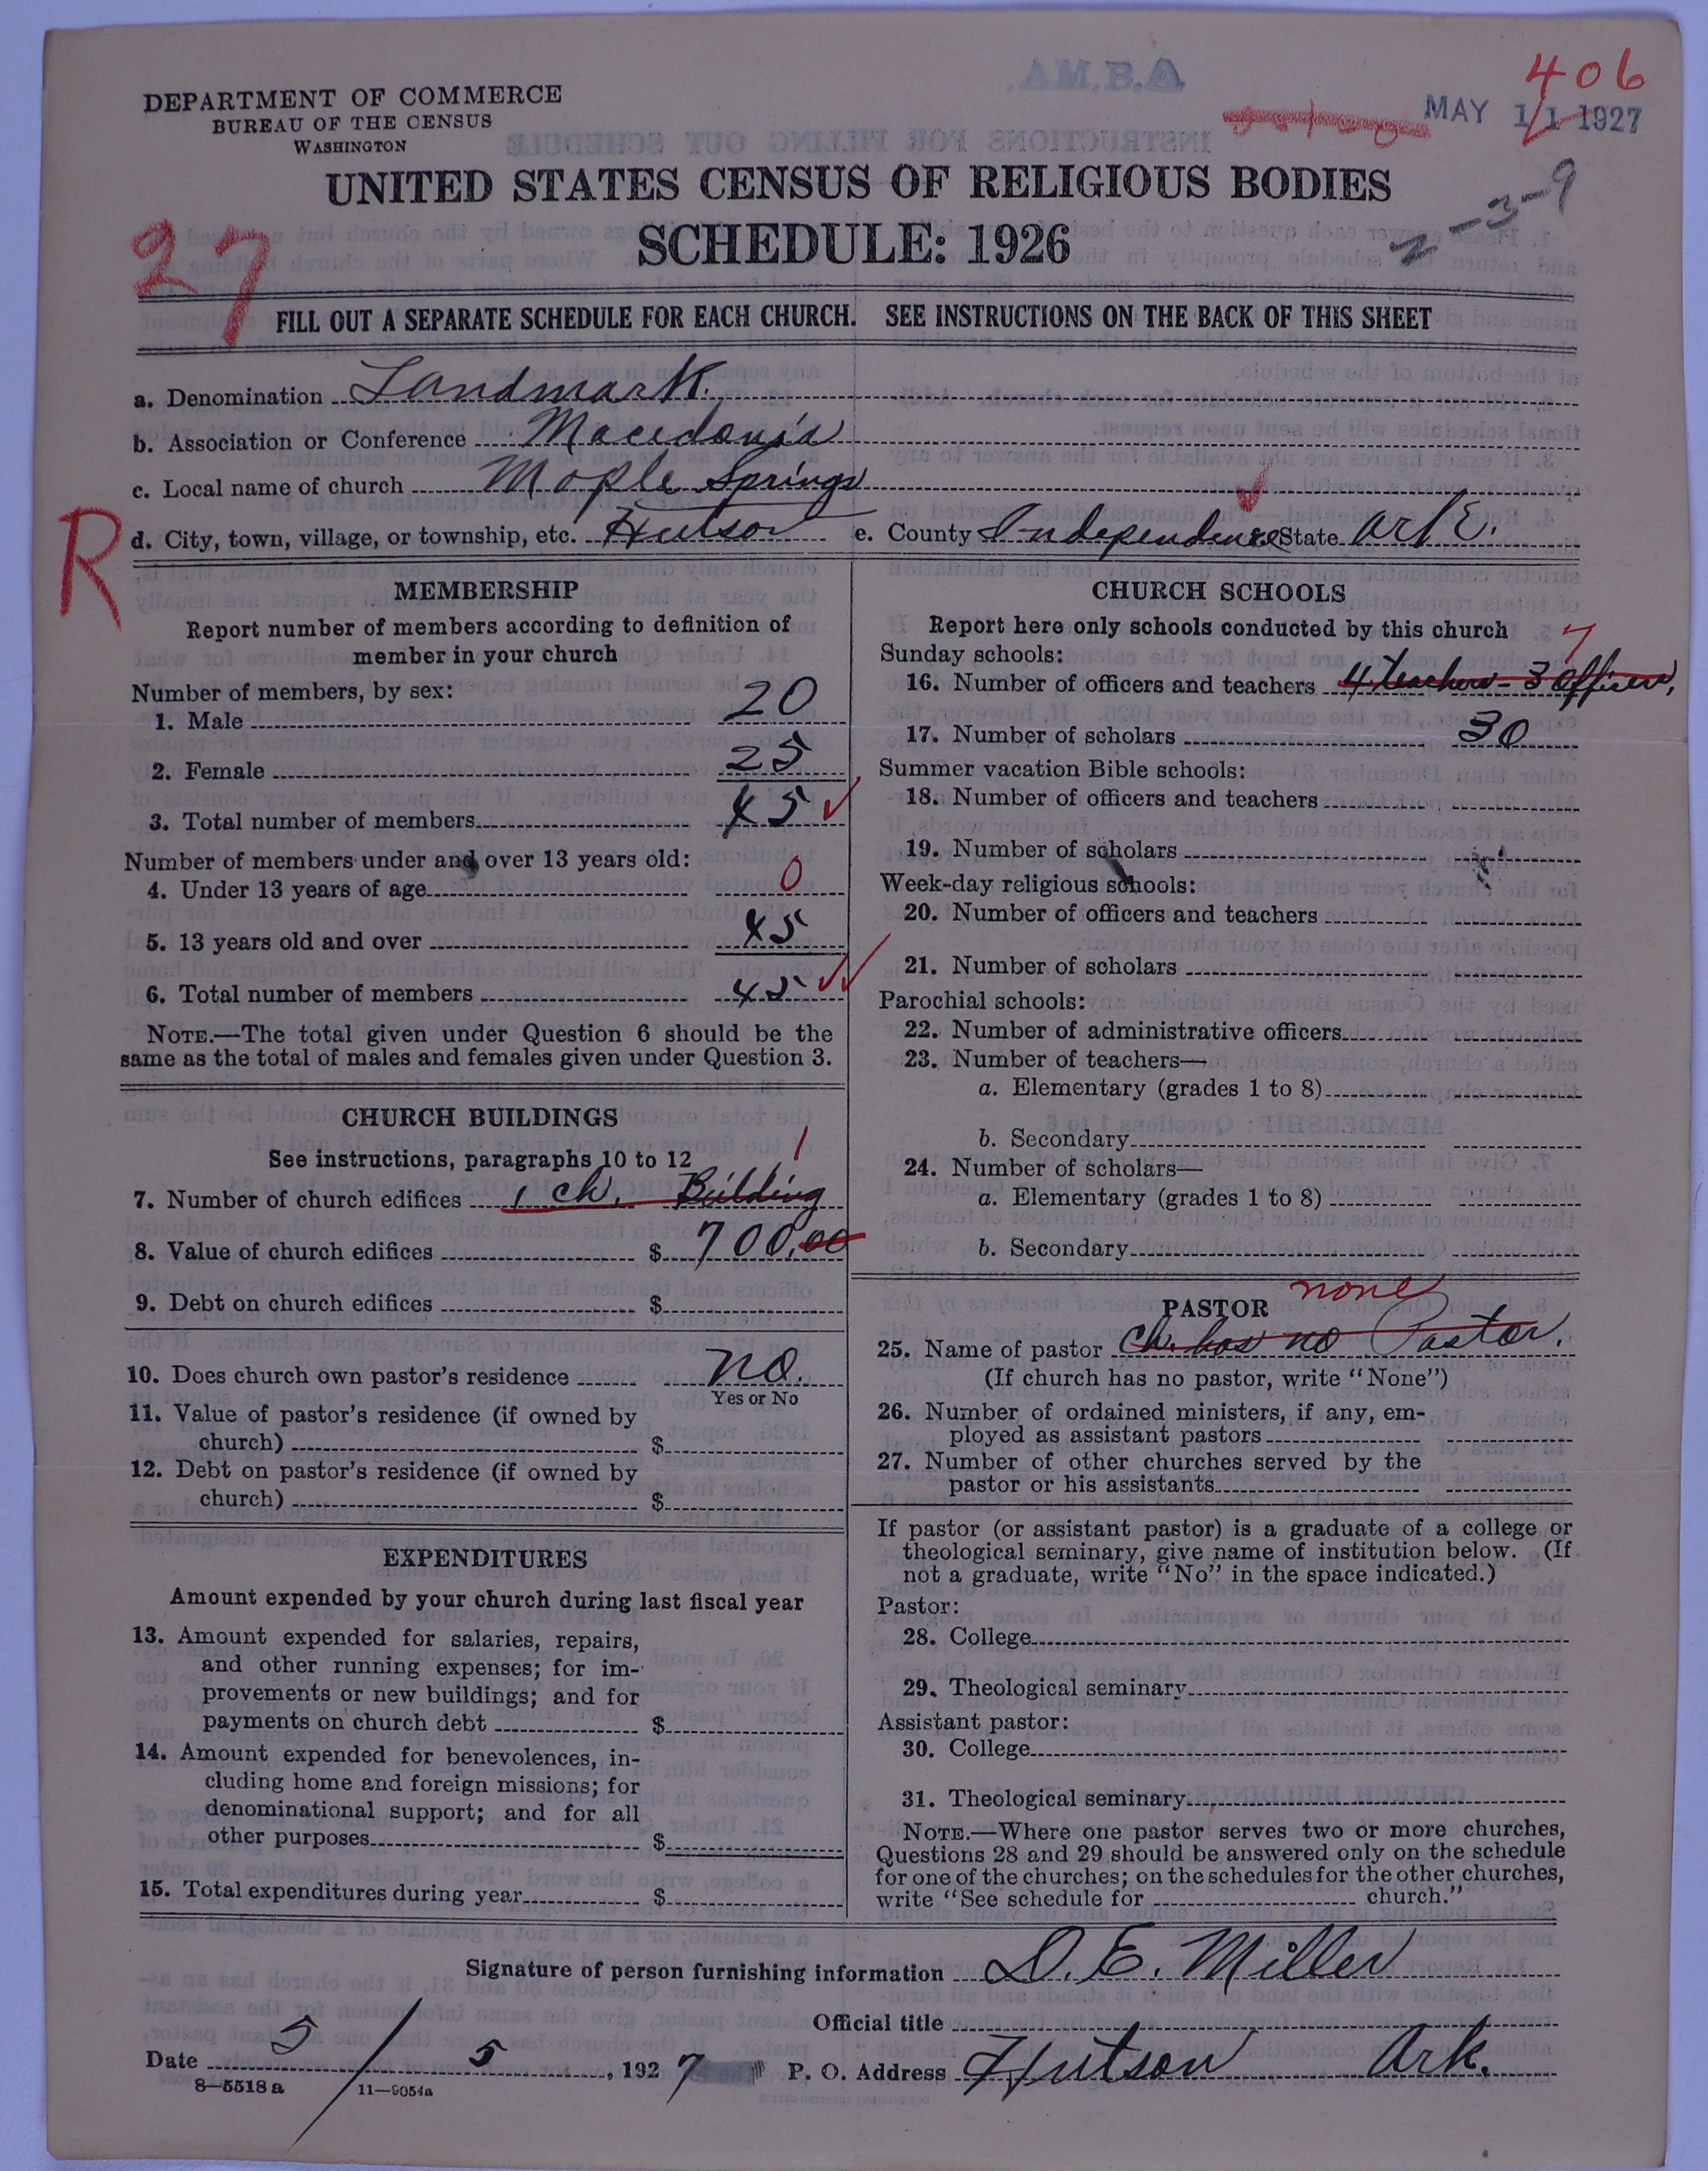 A.B.M.A.
406
MAY 11 1927
2-3-9
27
R
DEPARTMENT OF COMMERCE
BUREAU OF THE CENSUS
WASHINGTON
UNITED STATES CENSUS OF RELIGIOUS BODIES
SCHEDULE: 1926
FILL OUT A SEPARATE SCHEDULE FOR EACH CHURCH. SEE INSTRUCTIONS ON THE BACK OF THIS SHEET
a. Denomination Landmark.
b. Association or Conference Macedonia
c. Local name of church Mople Springs
d. City, town, village, or township, etc. Hutson e. County Independence State Ark.
MEMBERSHIP
Report number of members according to definition of
member in your church
Number of members, by sex:
1. Male 20
2. Female 25
3. Total number of members 45
Number of members under and over 13 years old:
4. Under 13 years of age 0
5. 13 years old and over 45
6. Total number of members 45
NOTE.—The total given under Question 6 should be the
same as the total of males and females given under Question 3.
CHURCH BUILDINGS
See instructions, paragraphs 10 to 12
1
7. Number of church edifices 1 Ch. Building
8. Value of church edifices $ 700.00
9. Debt on church edifices $
10. Does church own pastor's residence no.
Yes or No
11. Value of pastor's residence (if owned by
church) $
12. Debt on pastor's residence (if owned by
church) $
EXPENDITURES
Amount expended by your church during last fiscal year
13. Amount expended for salaries, repairs,
and other running expenses; for im-
provements or new buildings; and for
payments on church debt $
14. Amount expended for benevolences, in-
cluding home and foreign missions; for
denominational support; and for all
other purposes $
15. Total expenditures during year $
CHURCH SCHOOLS
Report here only schools conducted by this church
7
Sunday schools:
16. Number of officers and teachers 4 teachers - 3 officers,
17. Number of scholars 30
Summer vacation Bible schools:
18. Number of officers and teachers
19. Number of scholars
Week-day religious schools:
20. Number of officers and teachers
21. Number of scholars
Parochial schools:
22. Number of administrative officers
23. Number of teachers—
a. Elementary (grades 1 to 8)
b. Secondary
24. Number of scholars—
a. Elementary (grades 1 to 8)
b. Secondary
none
PASTOR
25. Name of pastor Ch. has no Pastor.
(If church has no pastor, write "None")
26. Number of ordained ministers, if any, em-
ployed as assistant pastors
27. Number of other churches served by the
pastor or his assistants
If pastor (or assistant pastor) is a graduate of a college or
theological seminary, give name of institution below. (If
not a graduate, write "No" in the space indicated.)
Pastor:
28. College
29. Theological seminary
Assistant pastor:
30. College
31. Theological seminary
NOTE.—Where one pastor serves two or more churches,
Questions 28 and 29 should be answered only on the schedule
for one of the churches; on the schedules for the other churches,
write "See schedule for church."
Signature of person furnishing information D. E. Miller
Official title
Date 5/5, 1927 P. O. Address Hutson Ark.
8—5518a 11—9054a